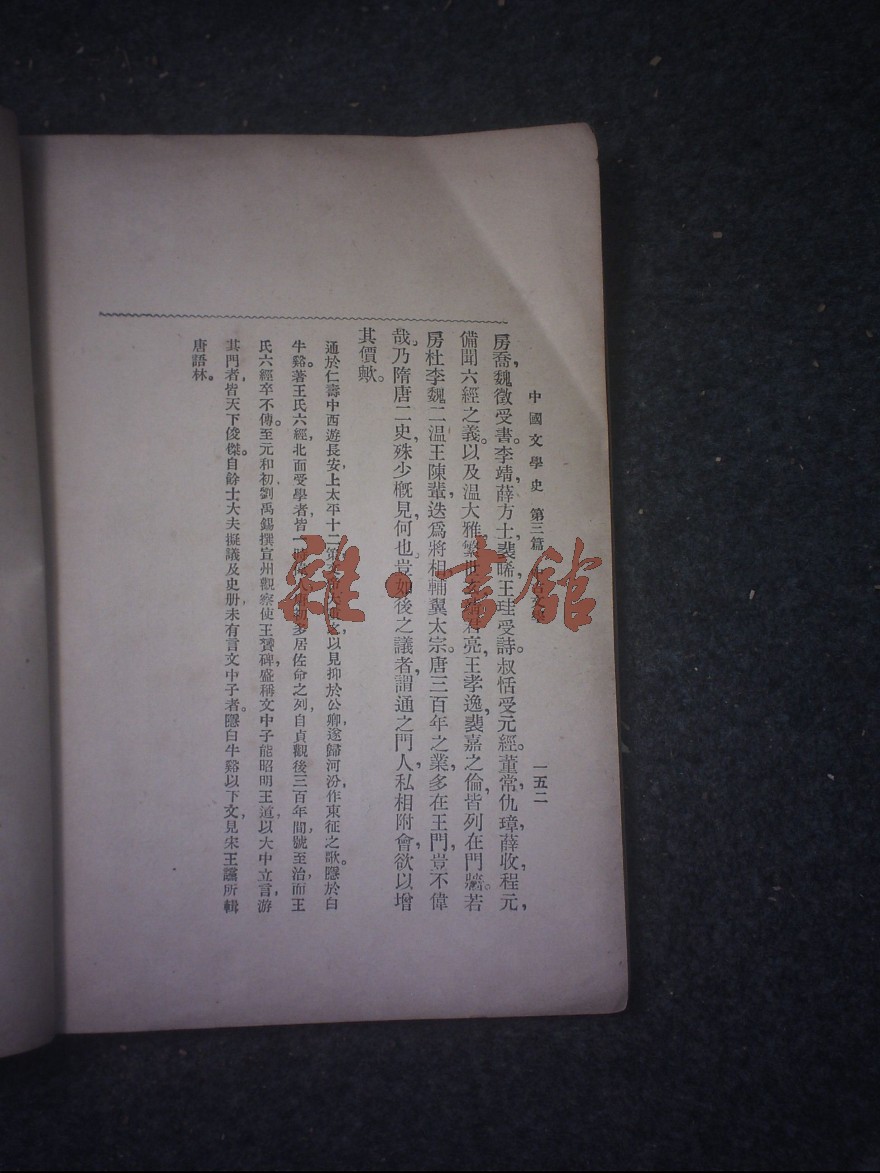 中國文學史　第三篇　中古文學
一五二
房喬，魏徵受書。李靖，薛方士，裴晞，王珪受詩。叔恬受元經。董常，仇璋，薛收，程元，
備聞六經之義。以及温大雅，繁師玄，君亮，王孝逸，裴嘉之倫，皆列在門牆。若
房杜李魏二温王陳輩，迭爲將相，輔翼太宗。唐三百年之業，多在王門，豈不偉
哉。乃隋唐二史，殊少槪見，何也。豈如後之議者，謂通之門人，私相附會，欲以增
其價歟。
通於仁壽中西遊長安，上太平十二策，以見抑於公卿，遂歸河汾，作東征之歌。隱於白
牛谿。著王氏六經，北面受學者，皆一時，多居佐命之列，自貞觀後三百年間，號至治，而王
氏六經卒不傳。至元和初，劉禹錫撰宣州觀察使王贊碑，盛稱文中子能昭明王道，以大中立言，游
其門者，皆天下俊傑。自餘士大夫擬議及史册，未有言文中子者。隱白牛谿以下文，見宋王讜所輯
唐語林。
雜·書館